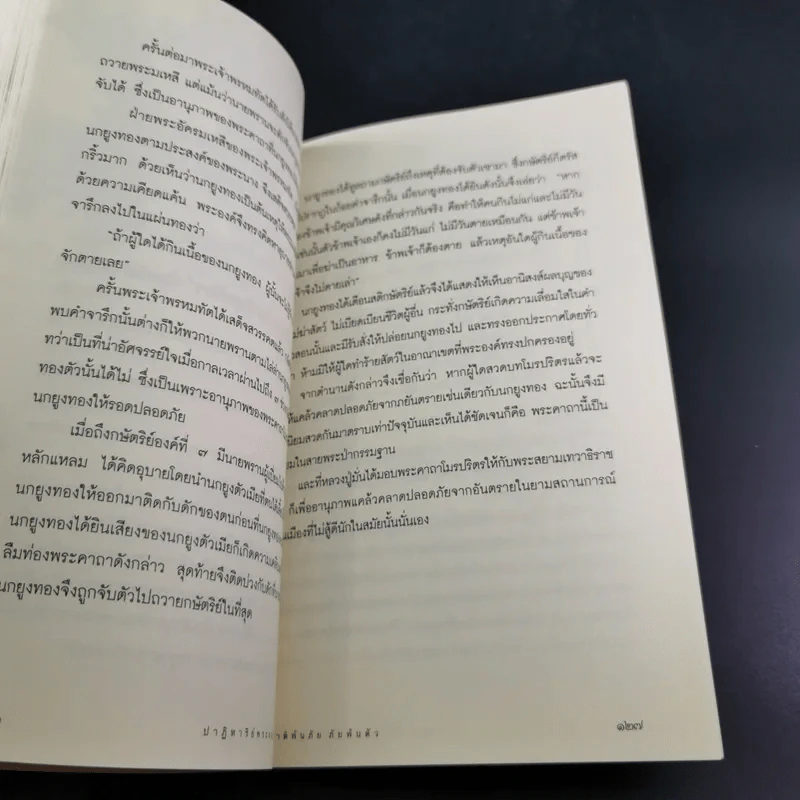 ครั้นต่อมาพระเจ้าพรหมทัตได้ยิน
ถวายพระมเหสี แต่แม้นว่านายพรานจะ
จับได้ ซึ่งเป็นอานุภาพของพระคาถา
ฝ่ายพระอัครมเหสีของพระเจ้าพรหม
นกยูงทองตามประสงค์ของพระนาง จึง
กริ้วมาก ด้วยเห็นว่านกยูงทองเป็นต้นเหตุให้
ด้วยความเคียดแค้น พระองค์จึงทรงคิด
จารึกลงไปในแผ่นทองว่า
"ถ้าผู้ใดได้กินเนื้อของนกยูงทอง ผู้นั้นจะ
จักตายเลย"
ครั้นพระเจ้าพรหมทัตได้เสด็จสวรรคตแล้ว
พบคำจารึกนั้นต่างก็ให้พวกนายพรานตามไล่ล่า
ทว่าเป็นที่น่าอัศจรรย์ใจเมื่อกาลเวลาผ่านไปถึง ๗
ทองตัวนั้นได้ไม่ ซึ่งเป็นเพราะอานุภาพของพระคาถา
นกยูงทองให้รอดปลอดภัย
เมื่อถึงกษัตริย์องค์ที่ ๗ มีนายพรานผู้
หลักแหลม ได้คิดอุบายโดยนำนกยูงตัวเมียที่ตนได้
นกยูงทองให้ออกมาติดกับดักของตนก่อนที่นกยูงทอง
นกยูงทองได้ยินเสียงของนกยูงตัวเมียก็เกิดความ
ลืมท่องพระคาถาดังกล่าว สุดท้ายจึงติดบ่วงกับดัก
นกยูงทองจึงถูกจับตัวไปถวายกษัตริย์ในที่สุด
นกยูงทองได้ทูลถามกษัตริย์ถึงเหตุที่ต้องจับตัวเขามา ซึ่งกษัตริย์ก็ตรัส
ในถ้อยคำจารึกนั้น เมื่อนกยูงทองได้ยินดังนั้นจึงเอ่ยว่า "หาก
ข้าพเจ้ามีคุณวิเศษดังที่กล่าวกันจริง คือทำให้คนกินไม่แก่และไม่มีวัน
เช่นนั้นตัวข้าพเจ้าเองก็คงไม่มีวันแก่ ไม่มีวันตายเหมือนกัน แต่ข้าพเจ้า
มาเพื่อฆ่าเป็นอาหาร ข้าพเจ้าก็ต้องตาย แล้วเหตุอันใดผู้กินเนื้อของ
จึงไม่ตายเล่า"
นกยูงทองได้เตือนสติกษัตริย์แล้วจึงได้แสดงให้เห็นอานิสงส์ผลบุญของ
ไม่ฆ่าสัตว์ ไม่เบียดเบียนชีวิตผู้อื่น กระทั่งกษัตริย์เกิดความเลื่อมใสในคำ
สอนนั้นและมีรับสั่งให้ปล่อยนกยูงทองไป และทรงออกประกาศโดยทั่ว
ห้ามมิให้ผู้ใดทำร้ายสัตว์ในอาณาเขตที่พระองค์ทรงปกครองอยู่
จากตำนานดังกล่าวจึงเชื่อกันว่า หากผู้ใดสวดบทโมรปริตรแล้วจะ
ให้แคล้วคลาดปลอดภัยจากภยันตรายเช่นเดียวกับนกยูงทอง ฉะนั้นจึงมี
นิยมสวดกันมาตราบเท่าปัจจุบันและเห็นได้ชัดเจนก็คือ พระคาถานี้เป็น
ในสายพระป่ากรรมฐาน
และที่หลวงปู่มั่นได้มอบพระคาถาโมรปริตรให้กับพระสยามเทวาธิราช
ก็เพื่ออานุภาพแคล้วคลาดปลอดภัยจากอันตรายในยามสถานการณ์
เมืองที่ไม่สู้ดีนักในสมัยนั้นนั่นเอง
พ้นภัย ภัยพ้นตัว
๑๒๗